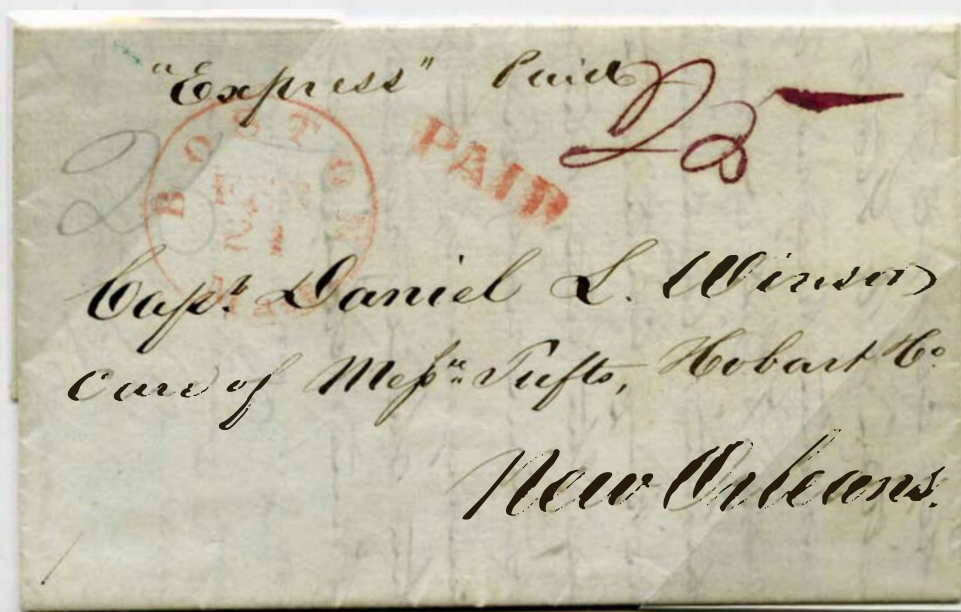 "Express" Paid 25
PAID
BOSTON
FEB
Capt. Daniel L. Winsor
Care of Messrs. Tufts, Hobart & Co
New Orleans.